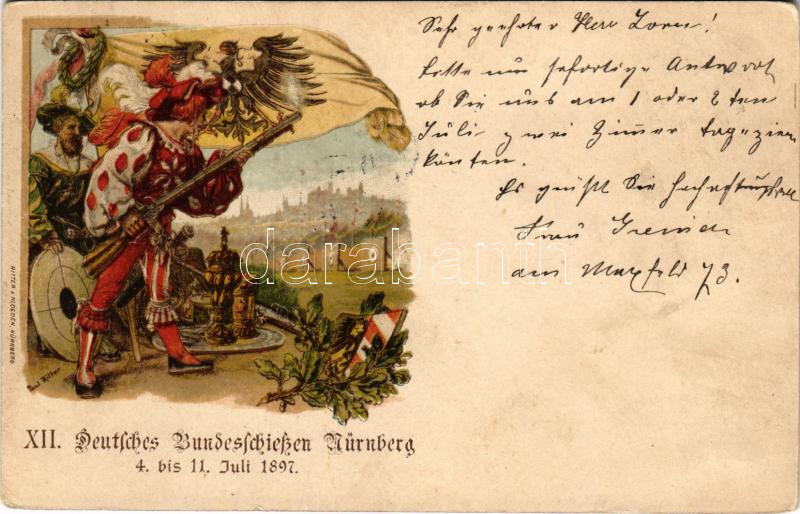 Sehr geehrter Herr Zorn!
bitte um sofortige Antwort
ob Sie uns am 1 oder 2 ten
Juli zwei Zimmer
könten.
Es grüßt Sie
Frau
am Maxfeld 73.
RITTER & KLOEDEN, NÜRNBERG
Paul Ritter
darabanth
XII. Deutsches Bundesschießen Nürnberg
4. bis 11. Juli 1897.